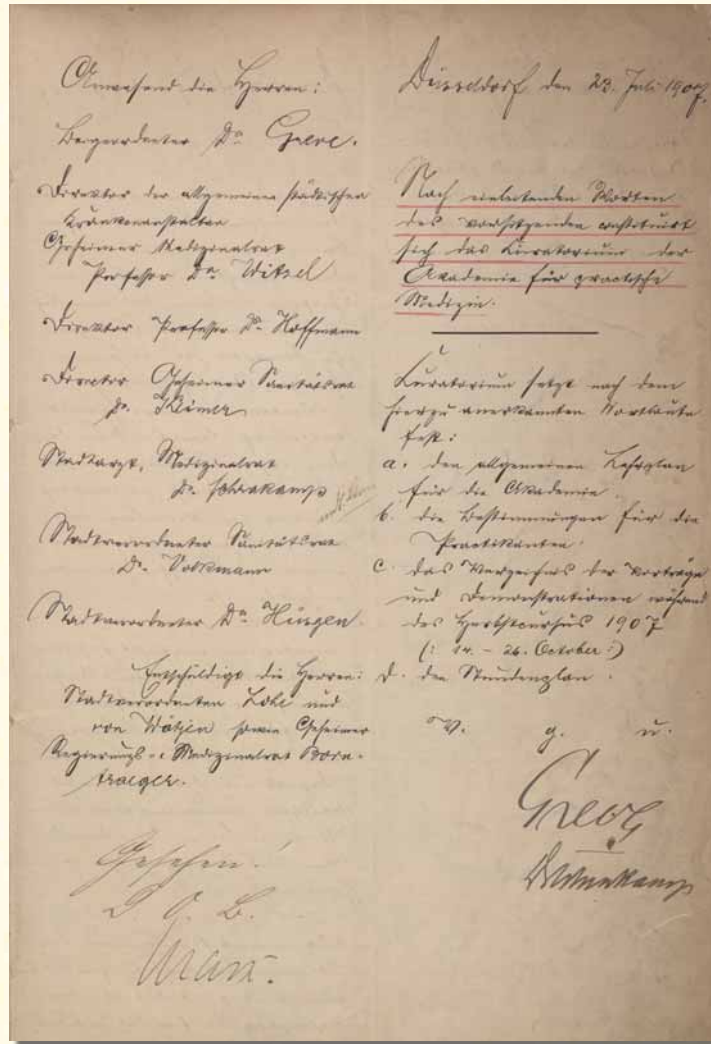 Anwesend die Herren:
Beigeordneter Dr. Greve.
Director der allgemeinen städtischen
Krankenanstalten
Geheimer Medizinalrat
Professor Dr. Witzel
Direktor Professor Dr. Hoffmann
Director Geheimer Sanitätsrat
Dr. Kleimer
Stadtarzt, Medizinalrat
Dr. Schrakamp
Stadtverordneter Sanitätsrat
Dr. Volkmann
Stadtverordneter Dr. Hüsgen.
Entschuldigt die Herren:
Stadtverordneten Lohe und
von Wätjen sowie Geheimer
Regierungs- u. Medizinalrat Born-
traeger.
Gesehen!
D. O. B.
Marx.
Düsseldorf den 23. Juli 1907.
Nach einleitenden Worten
des Vorsitzenden constituirt
sich das Kuratorium der
Akademie für practische
Medizin.
Kuratorium setzt nach dem
hierzu anerkannten Wortlaute
fest:
a. den allgemeinen Lehrplan
für die Akademie
b. die Bestimmungen für die
Practikanten.
c. das Verzeichnis der Vorträge
und Demonstrationen während
des Herbstcursus 1907
(: 14. - 26. October :)
d. den Stundenplan.
V. g. u.
Greve